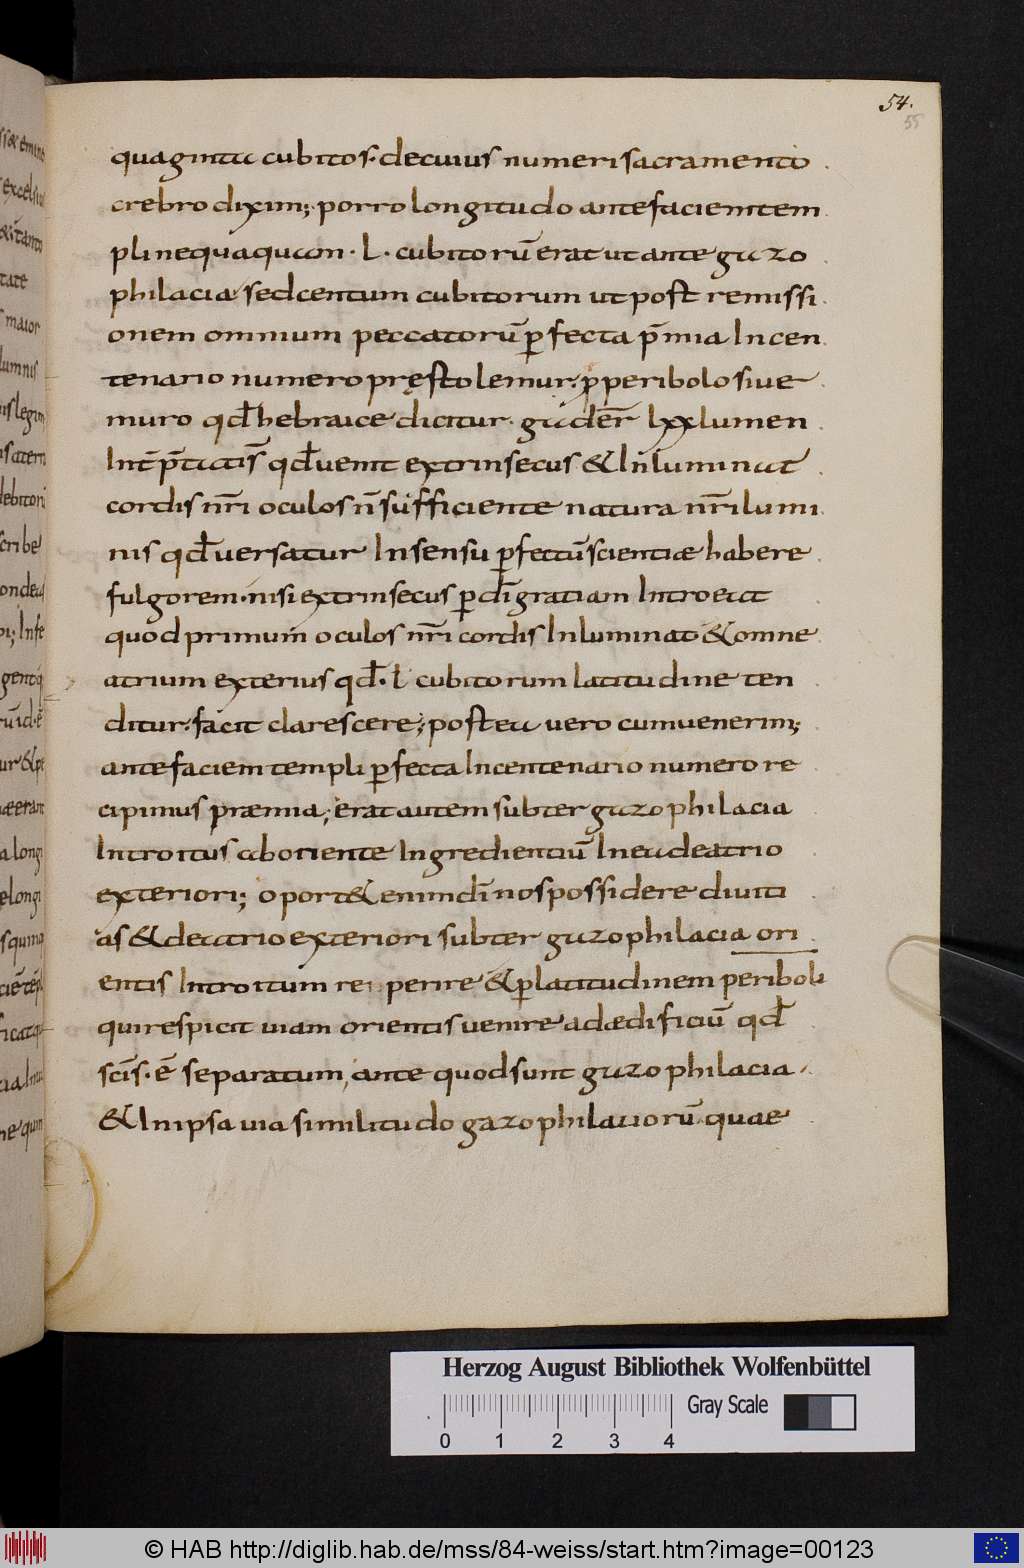 54.
55
quaginta cubitos· decuius numeri sacramento
crebro diximus; porro longitudo ante faciem tem
pli nequaquam · l · cubitorū erat ut ante gazo
philacia sed centum cubitorum ut post remissi
onem omnium peccatorū ꝑfecta p̄mia Incen
tenario numero pręstolemur· ꝓ peribolo siue
muro qđ hebraice dicitur· gader lxx lumen
Int̄p̄tatis̄ qđ uenit extrinsecus & Inluminat
cordis nr̄i oculos n̄ sufficiente natura nr̄i lumi
nis qđ uersatur In sensu ꝑfectū scientiæ habere
fulgorem· nisi extrinsecus ꝑ dī gratiam Introeat
quod primum oculos nr̄i cordis Inluminat & omne
atrium exterius qđ· l cubitorum latitudine ten
ditur· facit clarescere; postea vero cum uenerim;
ante faciem templi ꝑfecta In centenario numero re
cipimus præmia; erat autem subter gazophilacia
Introitus ab oriente Ingredientiū In ea de atrio
exteriori; oport& enim dī nos possidere diuiti
as & de atrio exteriori subter gazophilacia ori
entis Introitum reperire & ꝑ latitudinem periboli
qui respicit uiam orientis uenire ad ædificiū qđ
scīs· ē separatum, ante quod sunt gazophilacia
& In ipsa uia similitudo gazophilaciorū· quae
Herzog August Bibliothek Wolfenbüttel
Gray Scale
0 1 2 3 4
© HAB http://diglib.hab.de/mss/84-weiss/start.htm?image=00123